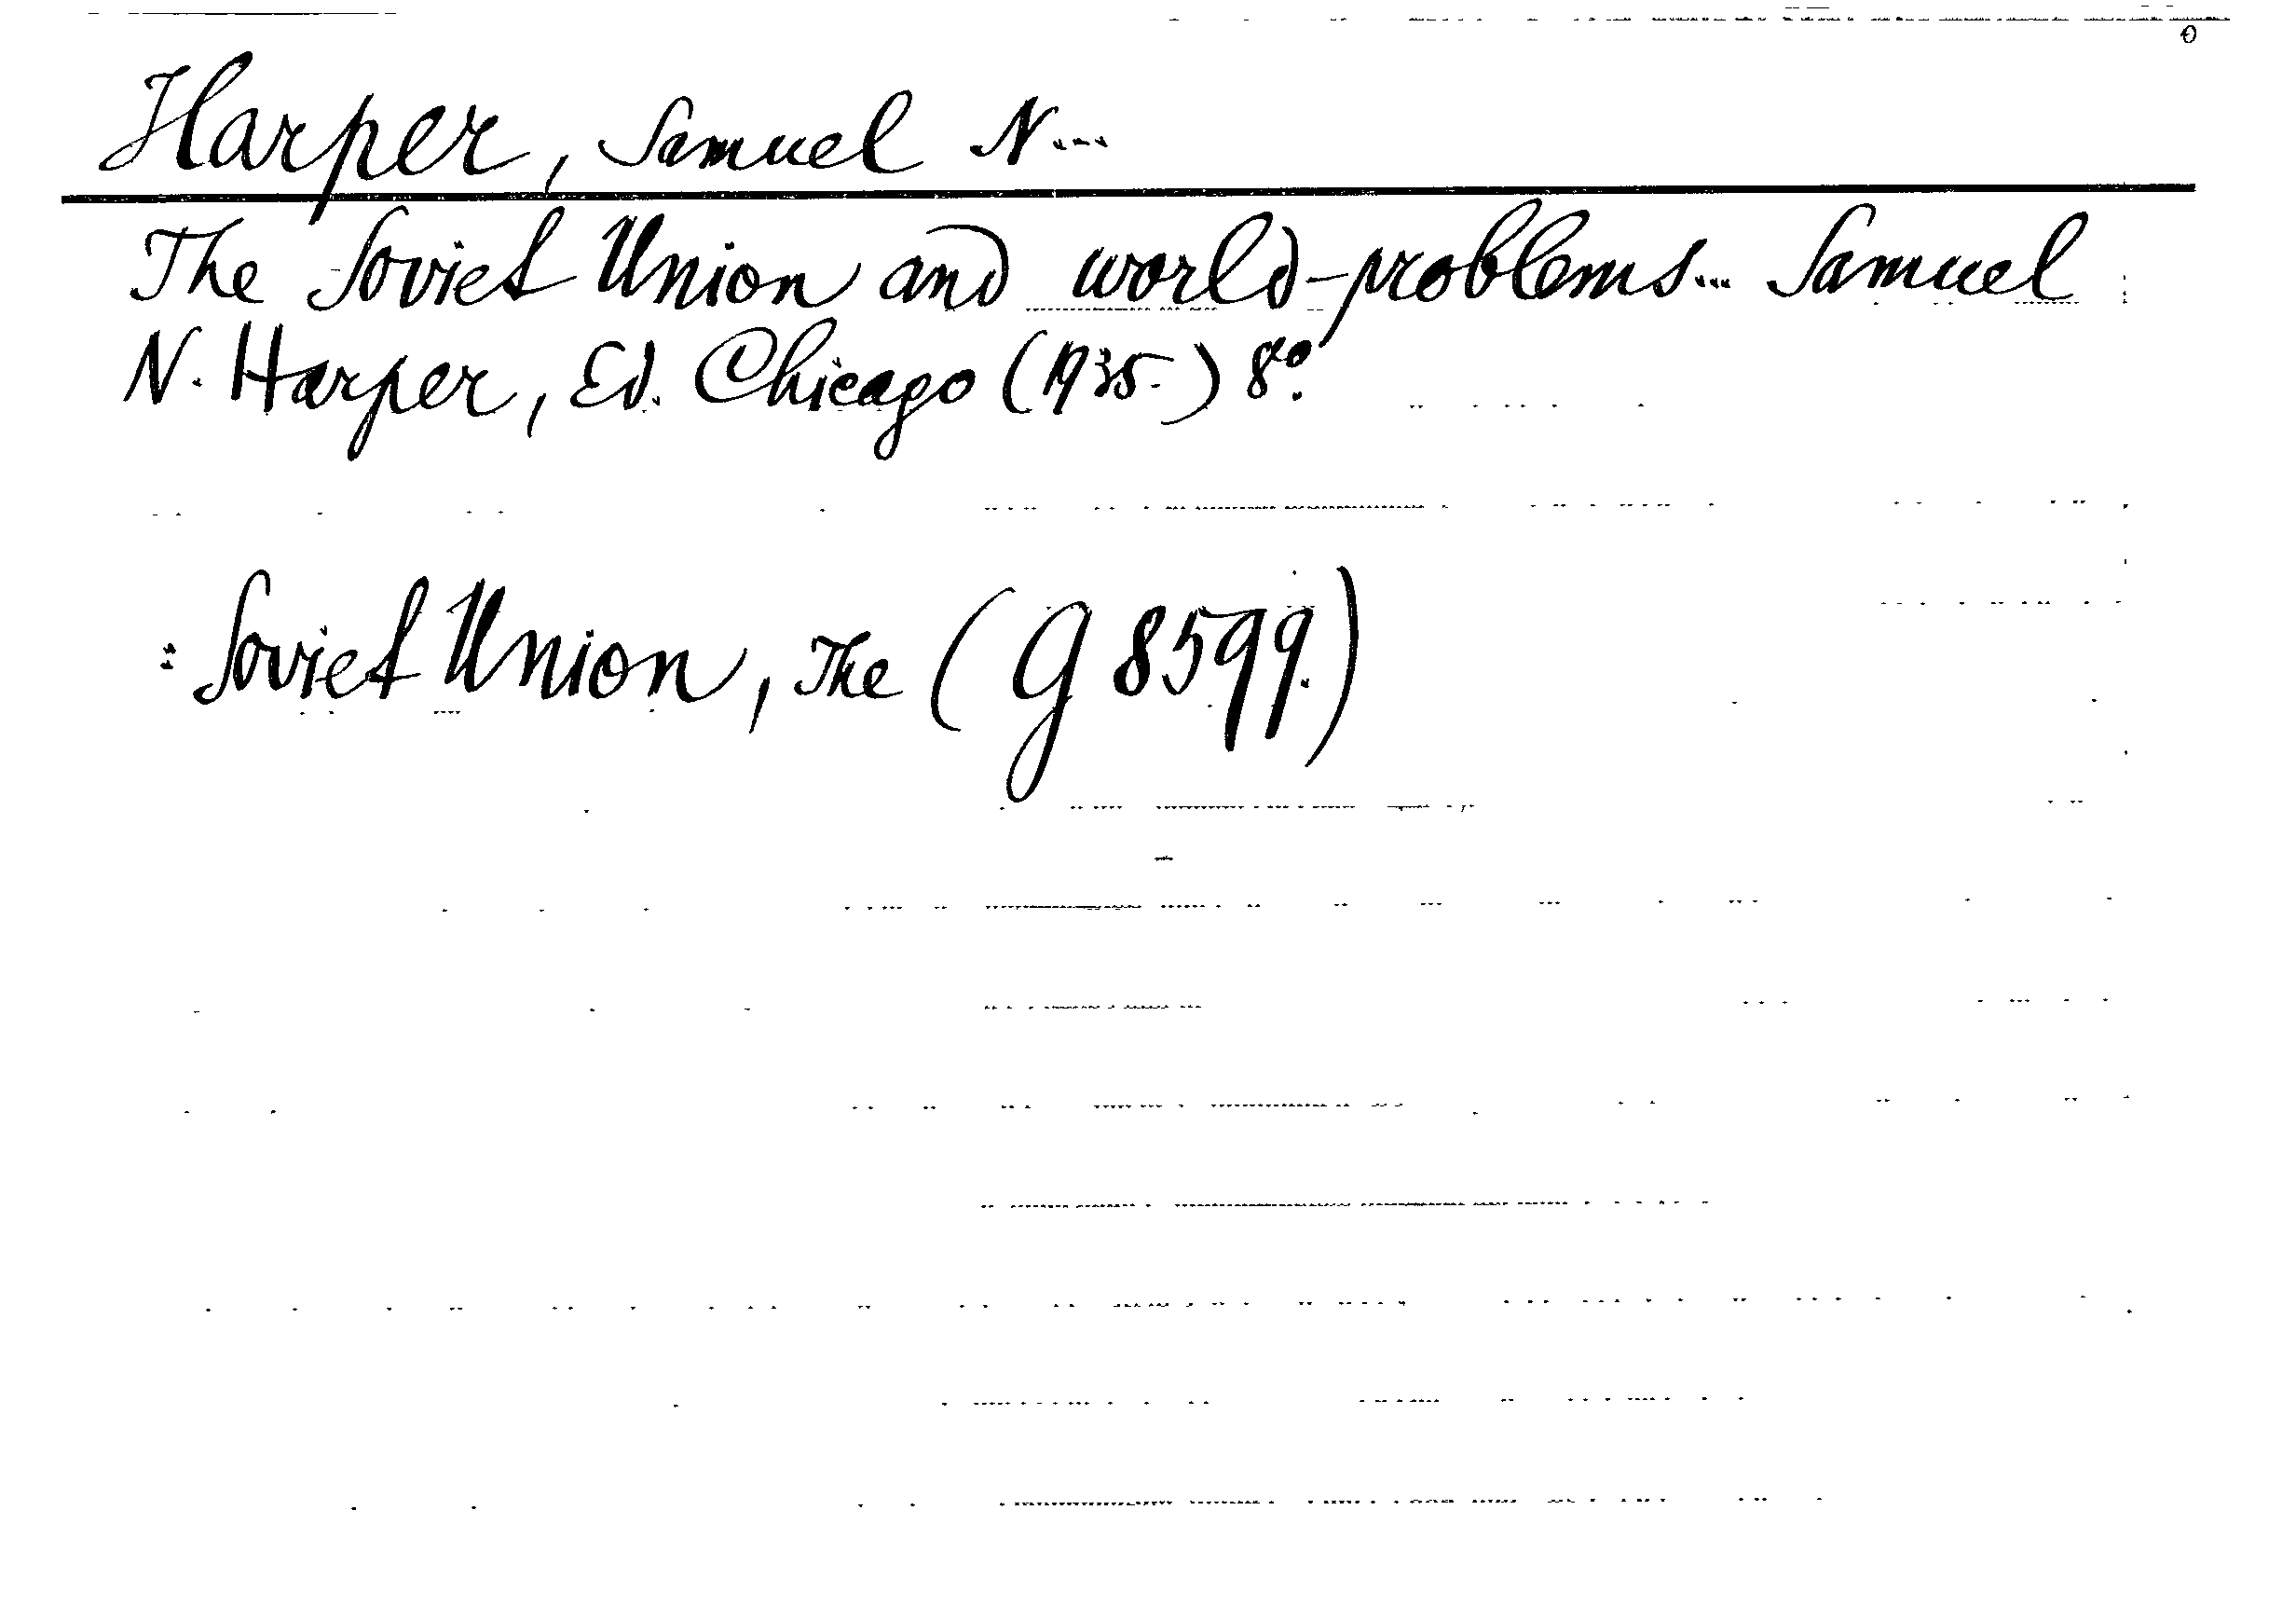 Harper, Samuel N...
The Soviet Union and world-problems... Samuel
N. Harper, Ed. Chicago (1935.) 8º.
: Soviet Union, The (G 8599.)